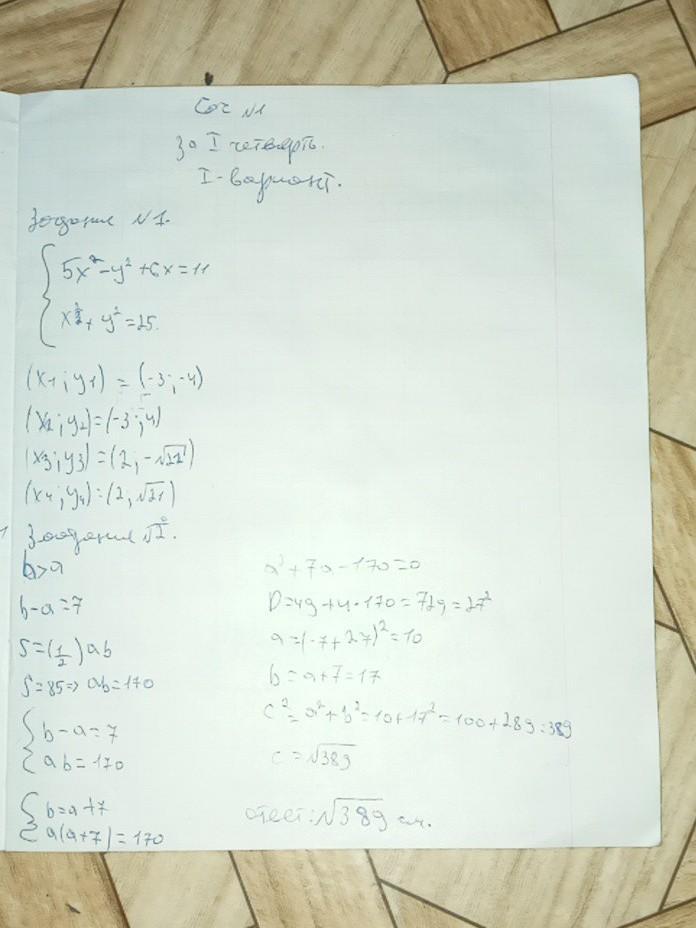 Соч №1
за I четверть.
I-вариант.
Задание №1.
5x²-y²+6x=11
x²+y²=25.
(x1;y1)=(-3;-4)
(x2;y2)=(-3;4)
(x3;y3)=(2;-√21)
(x4;y4)=(2;√21)
Задания №2.
b>a
b-a=7
S=(1/2)ab
S=85=>ab=170
b-a=7
ab=170
b=a+7
a(a+7)=170
a²+7a-170=0
D=49+4·170=729=27²
a=(-7+27)²=10
b=a+7=17
c²=a²+b²=10+17²=100+289=389
c=√389
ответ:√389 см.